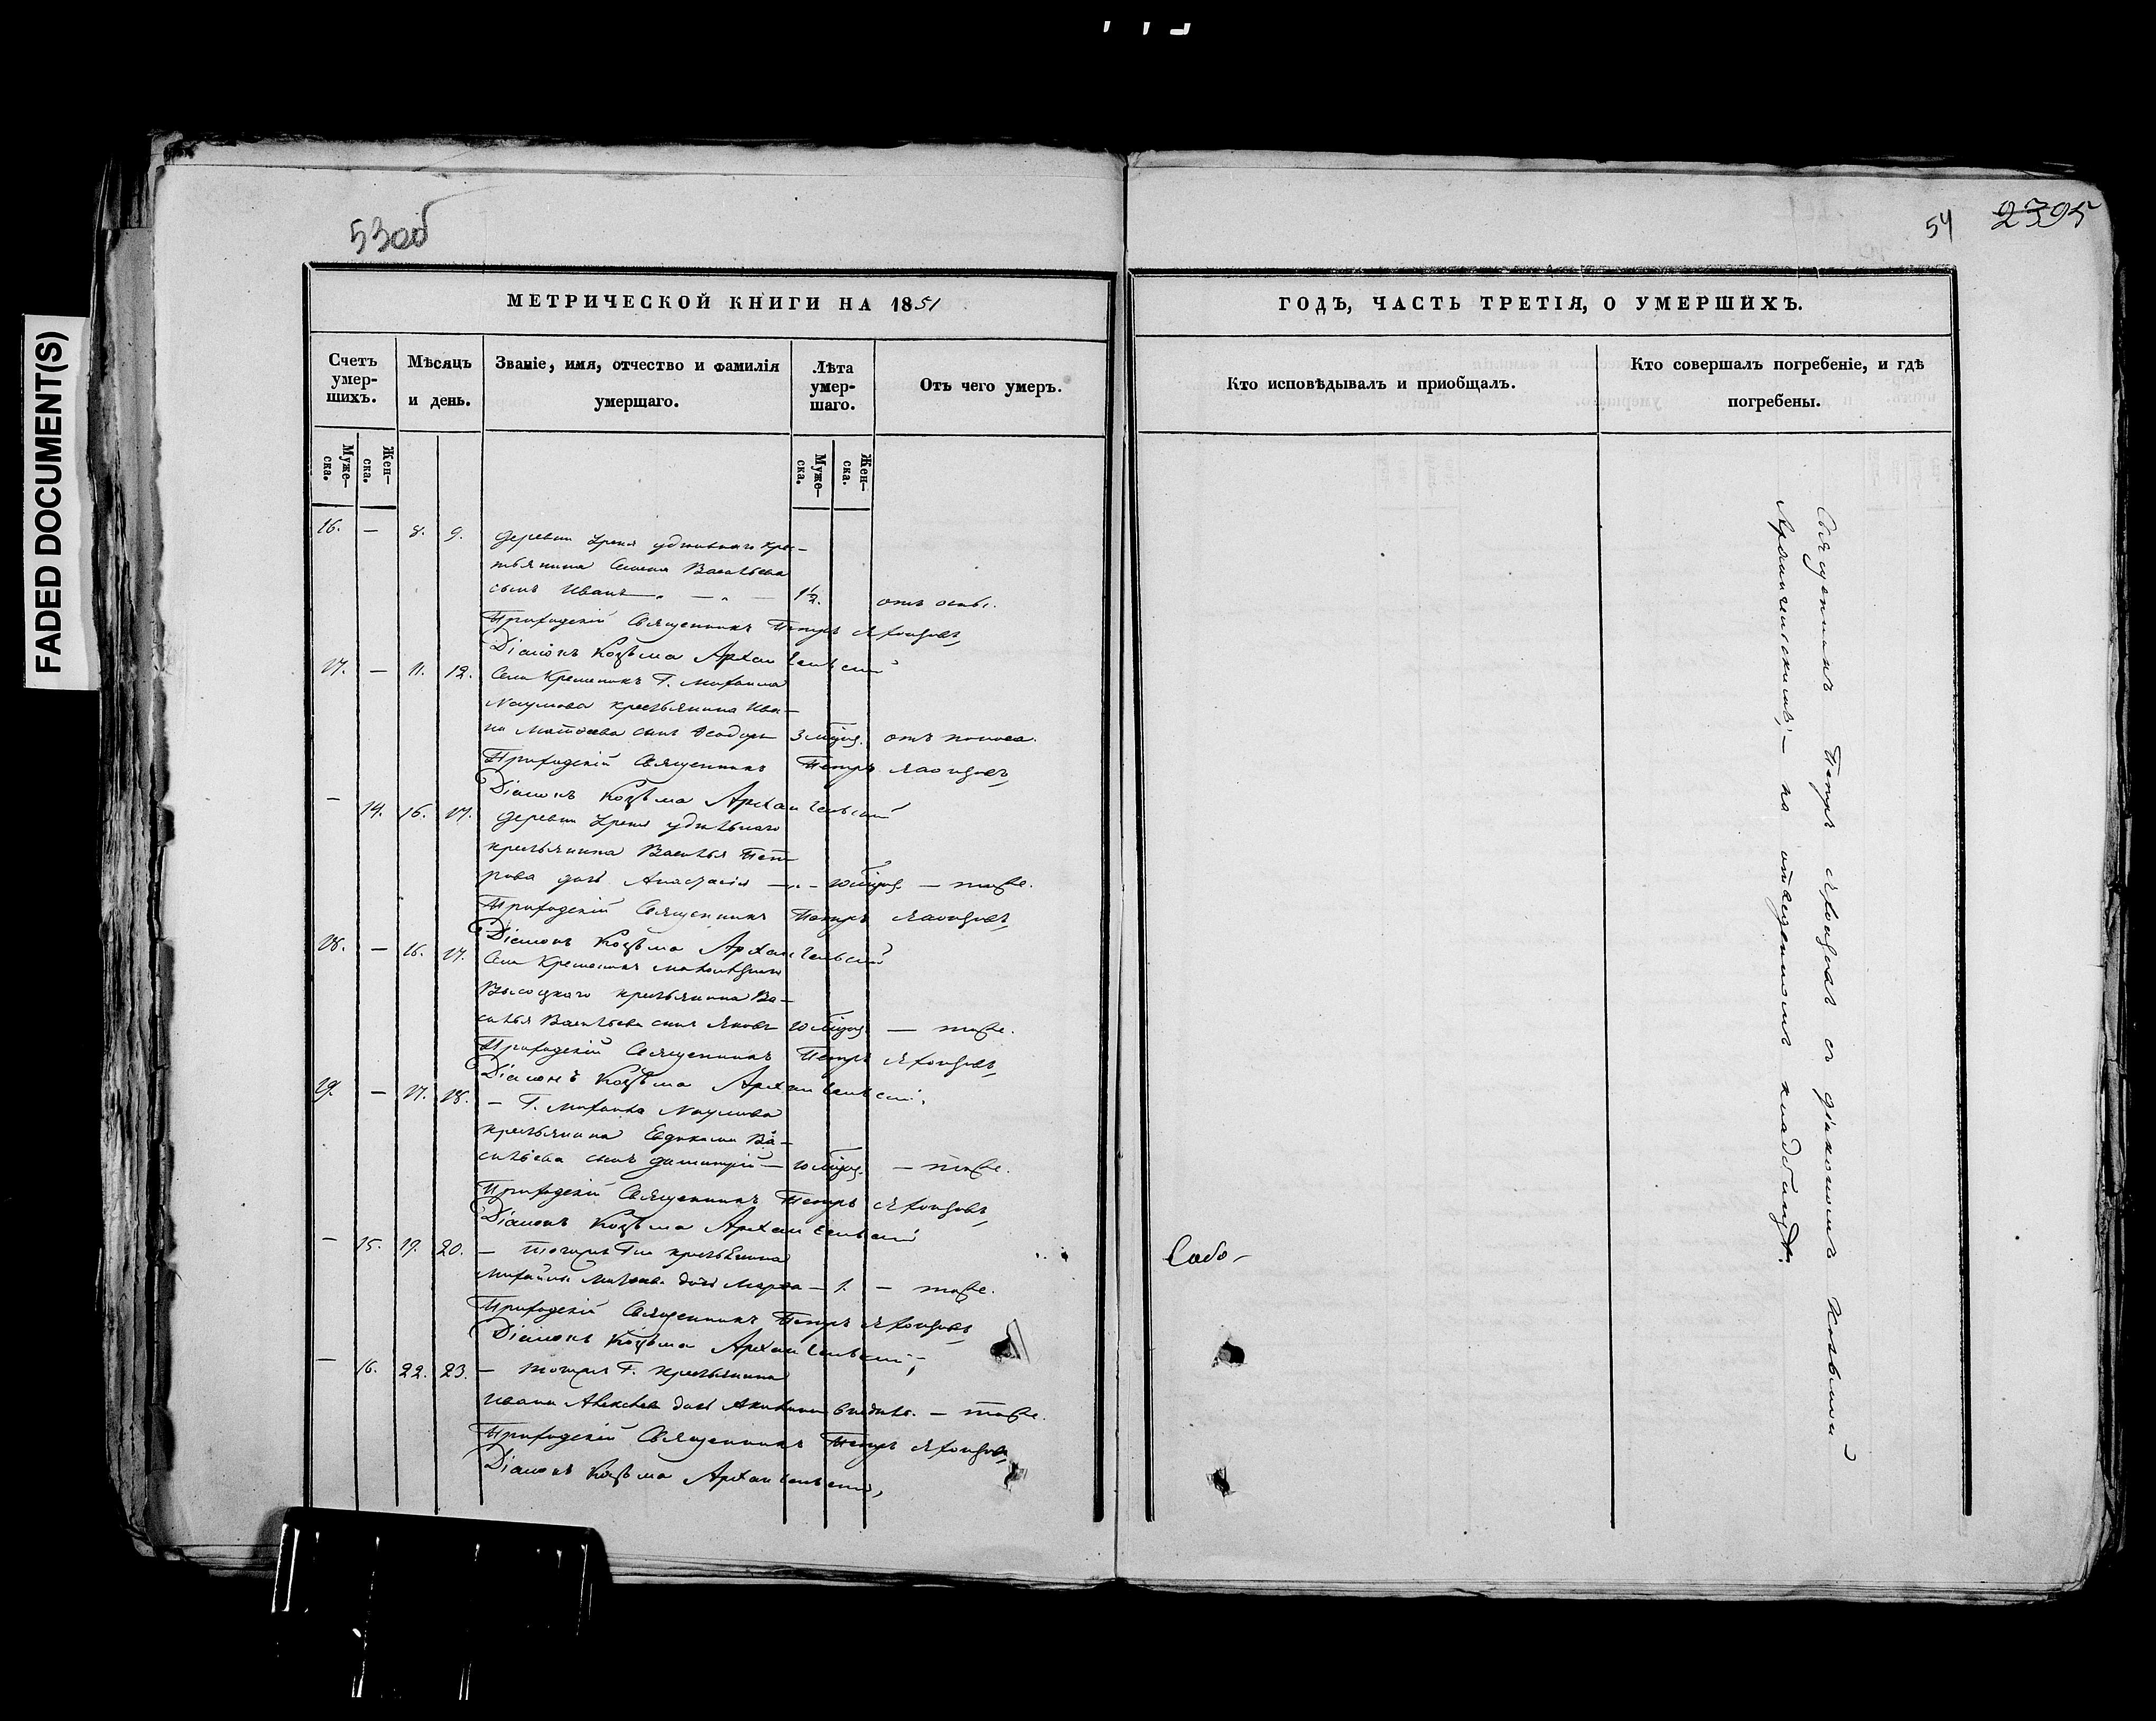 FADED DOCUMENT(S)
53об
54 2395
МЕТРИЧЕСКОЙ КНИГИ НА 1851
ГОДЪ, ЧАСТЬ ТРЕТІЯ, О УМЕРШИХЪ.
Счетъ умер-шихъ.
Мѣсяцъ и день.
Званіе, имя, отчество и фамилія умершаго.
Лѣта умер-шаго.
Отъ чего умеръ.
Кто исповѣдывалъ и приобщалъ.
Кто совершалъ погребеніе, и гдѣ погребены.
Муже-ска.
Жен-ска.
Муже-ска.
Жен-ска.
16. — 8. 9. деревни удѣльнаго кре-
стьянина Семена Васильева
сынъ Иванъ — „ — 1½. отъ оспы.
Приходскій Священникъ Петръ
Діаконъ Козьма Архангельскій
17. — 11. 12. Села Г. Михаила
Наумова крестьянина Ива-
на Матѳеева сынъ Ѳеодоръ 3 отъ поноса.
Приходскій Священникъ Петръ
Діаконъ Козьма Архангельскій
— 14. 16. 17. деревни удѣльнаго
крестьянина Василья Пет-
рова дочь Анастасія — „ — тоже.
Приходскій Священникъ Петръ
Діаконъ Козьма Архангельскій
18. — 16. 17. Села
Высоцкаго крестьянина Ва-
силья Васильева сынъ Яковъ — тоже.
Приходскій Священникъ Петръ
Діаконъ Козьма Архангельскій
19. — 17. 18. — Г. Михаила Наумова
крестьянина Евдокима Ва-
сильева сынъ Димитрій — — тоже.
Приходскій Священникъ Петръ
Діаконъ Козьма Архангельскій
— 15. 19. 20. — тогоже Г-на крестьянина
Михайлы дочь Марѳа — 1. — тоже.
Приходскій Священникъ Петръ
Діаконъ Козьма Архангельскій
— 16. 22. 23. — тогоже Г. крестьянина
Ивана Алексѣева дочь Акилина 6 недѣль. — тоже.
Приходскій Священникъ Петръ
Діаконъ Козьма Архангельскій,
Священникъ Петръ съ діакономъ Козьмой
Архангельскимъ, — на отведенномъ кладбищѣ.
Собо-